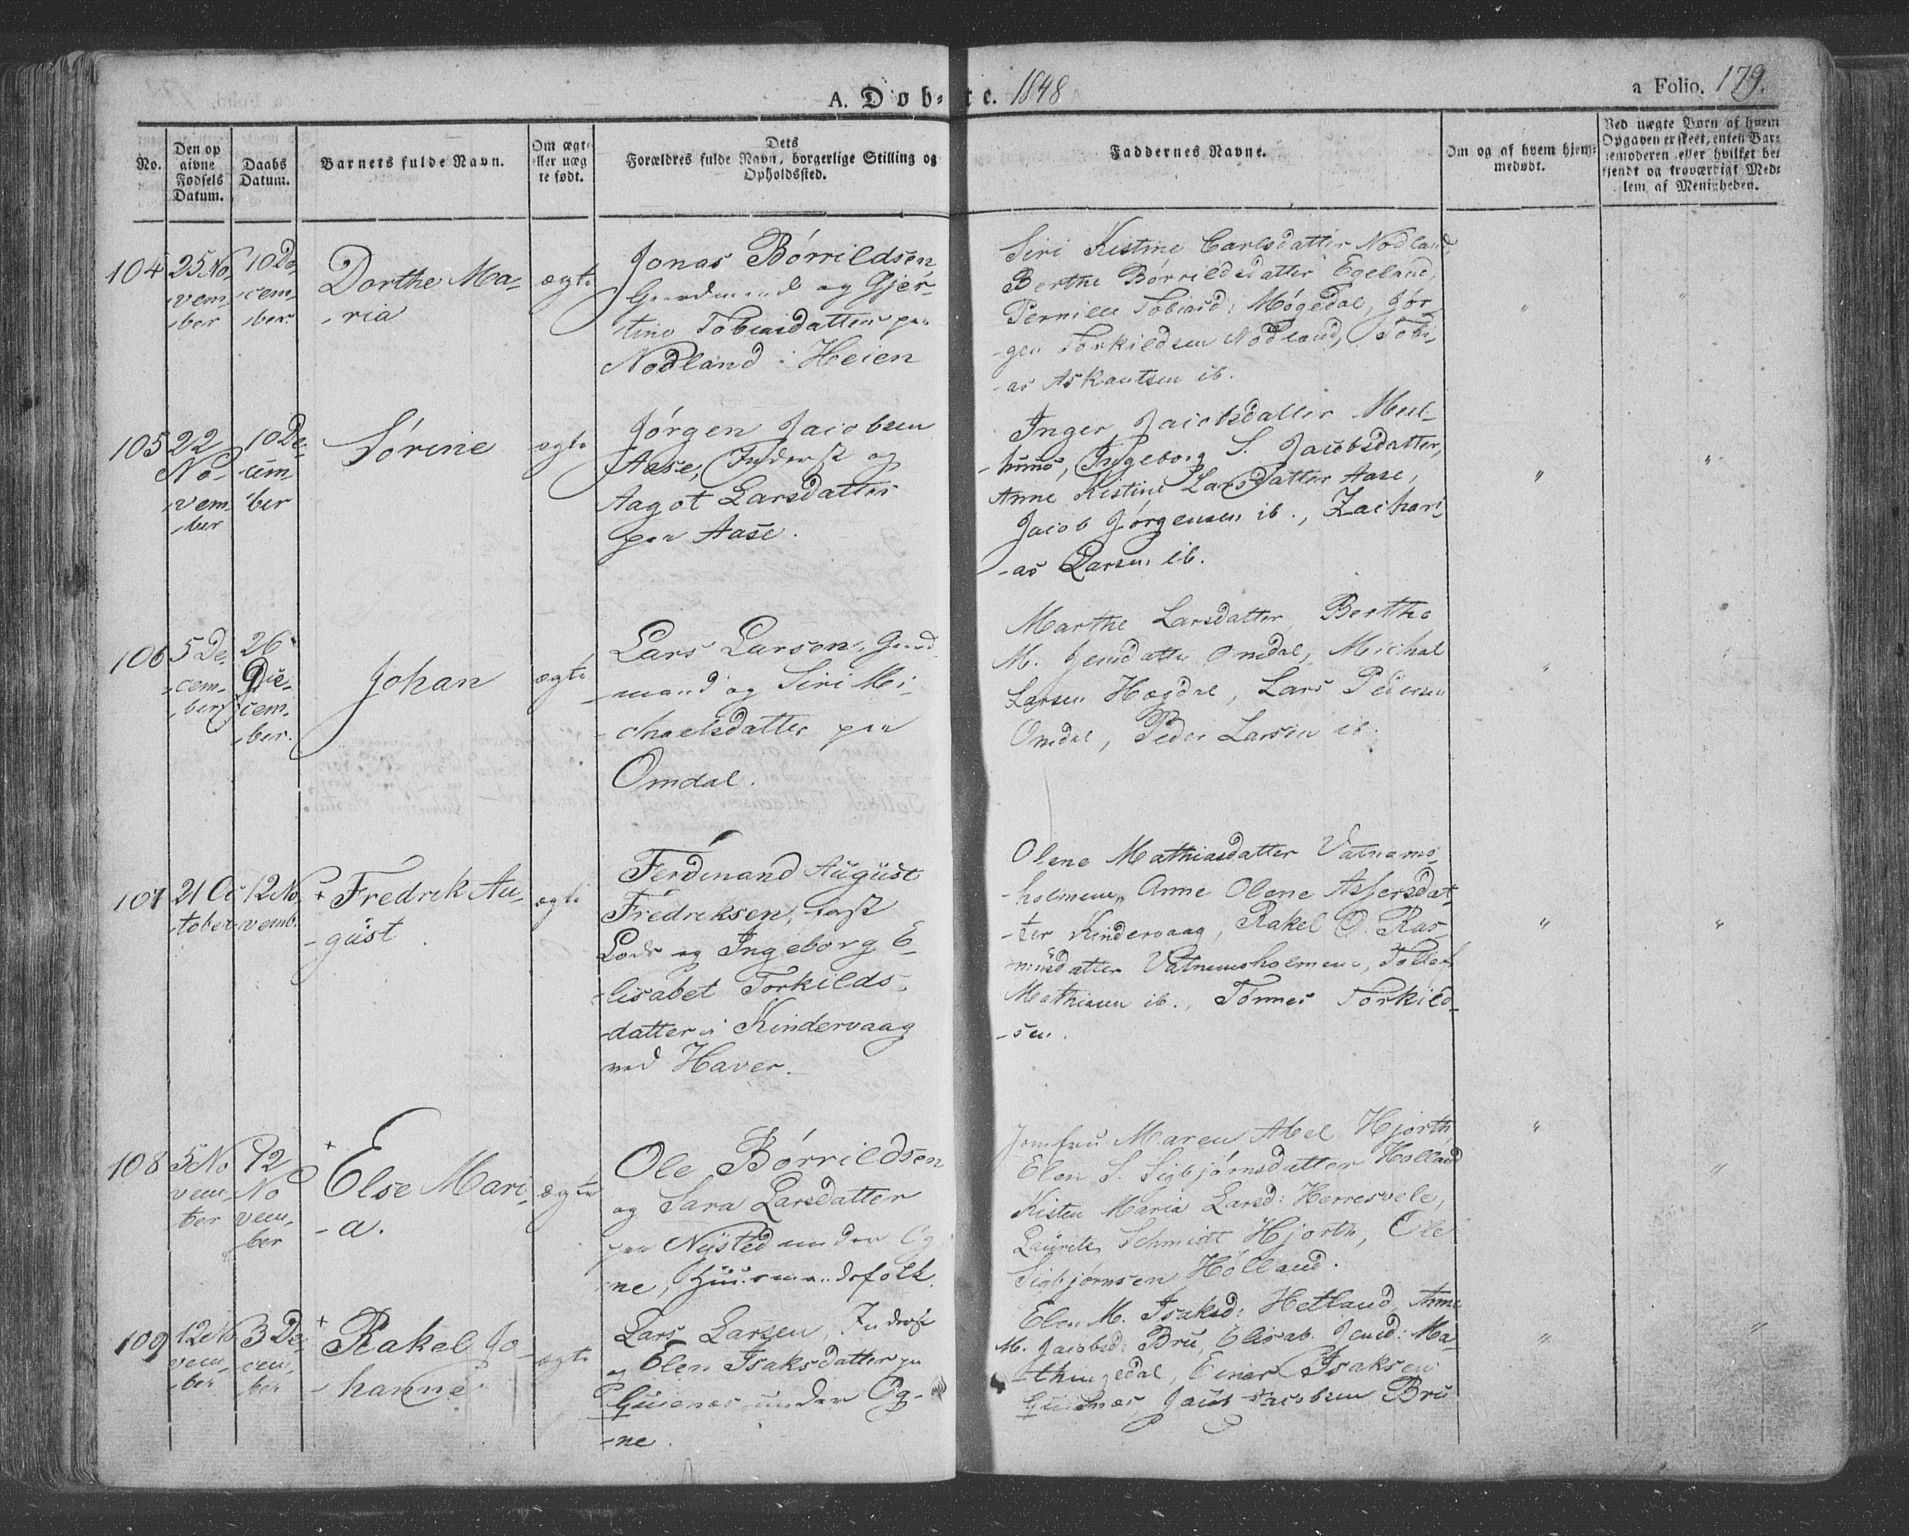 A. Døb- te. 1848
a Folio. 179.
No.
Den op
givne
Fødsels
Datum.
Daabs
Datum.
Barnets fulde Navn.
Om ægte
eller uæg
te født.
Dets
Forældres fulde Navn, borgerlige Stilling og
Opholdssted.
Faddernes Navne.
Om og af hvem hjem-
medøbt.
Ved uægte Børn af hvem
Opgaven er skeet, enten Bar-
nemoderen eller hvilket be
kjendt og troværdigt Med-
lem af Menigheden.
104
25 No
-vem
-ber
10 De
-cem-
-ber.
Dorthe Ma-
-ria
ægte
Jonas Børrildsen
Gaardmand og Gjer-
tine Tobiasdatter paa
Nodland i Heien
Siri Kistine Carlsdatter Nodland
Berthe Børrildsdatter Egeland,
Pernille Tobiasd: Møgedal, Jør
-gen Torkildsen Nodland, Tobi-
-as Askautsen ib.
"
"
105
22
No
-vem
-ber
10 De-
-cem-
ber
Sørine
ægte
Jørgen Jacobsen
Aase, Inderst og
Aagot Larsdatter
paa Aase.
Inger Jacobsdatter
-huus, Ingeborg S. Jacobsdatter,
Anne Kistine Larsdatter Aase,
Jacob Jørgensen ib., Zachari
-as Larsen ib.
"
"
106
5 De
-cem-
-ber
26
De-
-cem-
-ber.
Johan
ægte
Lars Larsen, Gaard
-mand og Siri Mi-
-chaelsdatter paa
Omdal.
Marthe Larsdatter, Berthe
M. Jensdatter Omdal, Michal
Larsen Hægdal, Lars Pedersen
Omdal, Peder Larsen ib.
"
"
107
21 Oc
-tober
12 No
-vemb.
+ Fredrik Au-
-gust.
ægte
Ferdinand August
Fredriksen, fast
Lods og Ingeborg E-
-lisabet Torkilds-
-datter i Kindervaag
ved Haver.
Olene Mathiasdatter Vatnams-
-holmene, Anne Olene Assersdat-
-ter Kindervaag, Rakel O. Ras-
-musdatter Vatnemsholmene, Tollak
Mathiasen ib., Tønnes Torkild-
-sen.
"
"
108
5 No
vem-
ber
12
No
vem-
ber
+
Else Mari-
-a.
ægte
Ole Børrildsen
og Sara Larsdatter
paa Nysted under Og
-ne, Huusmandsfolk.
Jomfru Maren Abel Hjorth,
Elen S. Sigbjørnsdatter Holland
Kisten Maria Larsd: Herresvele,
Laurits Schmidt Hjorth, Ole
Sigbjørnsen Holland.
"
"
109
12 No
vem-
ber
3 De-
cem-
ber
+
Rakel Jo-
-hanne
ægte
Lars Larsen, Inderst
og Elen Isaksdatter paa
under Og-
-ne.
Elen M. Isaksd: Hetland, Anne
M. Jacobsd: Bru, Elisab. Jensd: Ma-
Einar Isaksen
Jacob Jacobsen Bru
"
"